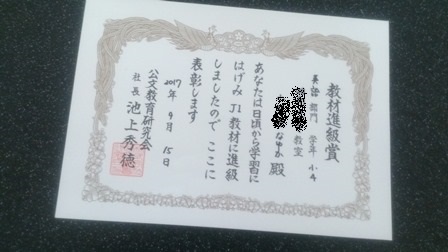 教材進級賞
英語部門 学年 小4
教室
殿
あなたは日頃から学習に
はげみ J1教材に進級
しましたので ここに
表彰します
2017年9月15日
公文教育研究会
社長 池上秀徳